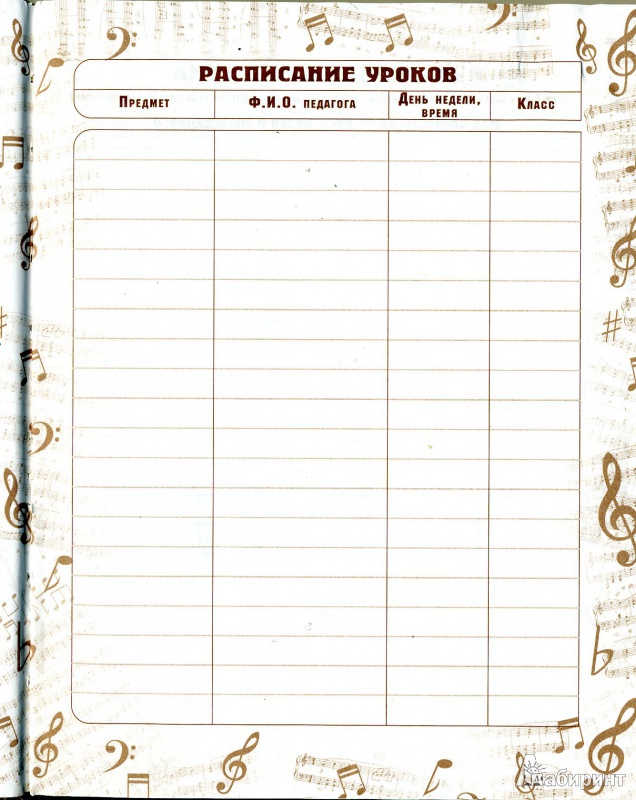 РАСПИСАНИЕ УРОКОВ
Предмет
Ф.И.О. педагога
День недели,
время
Класс
Лабиринт